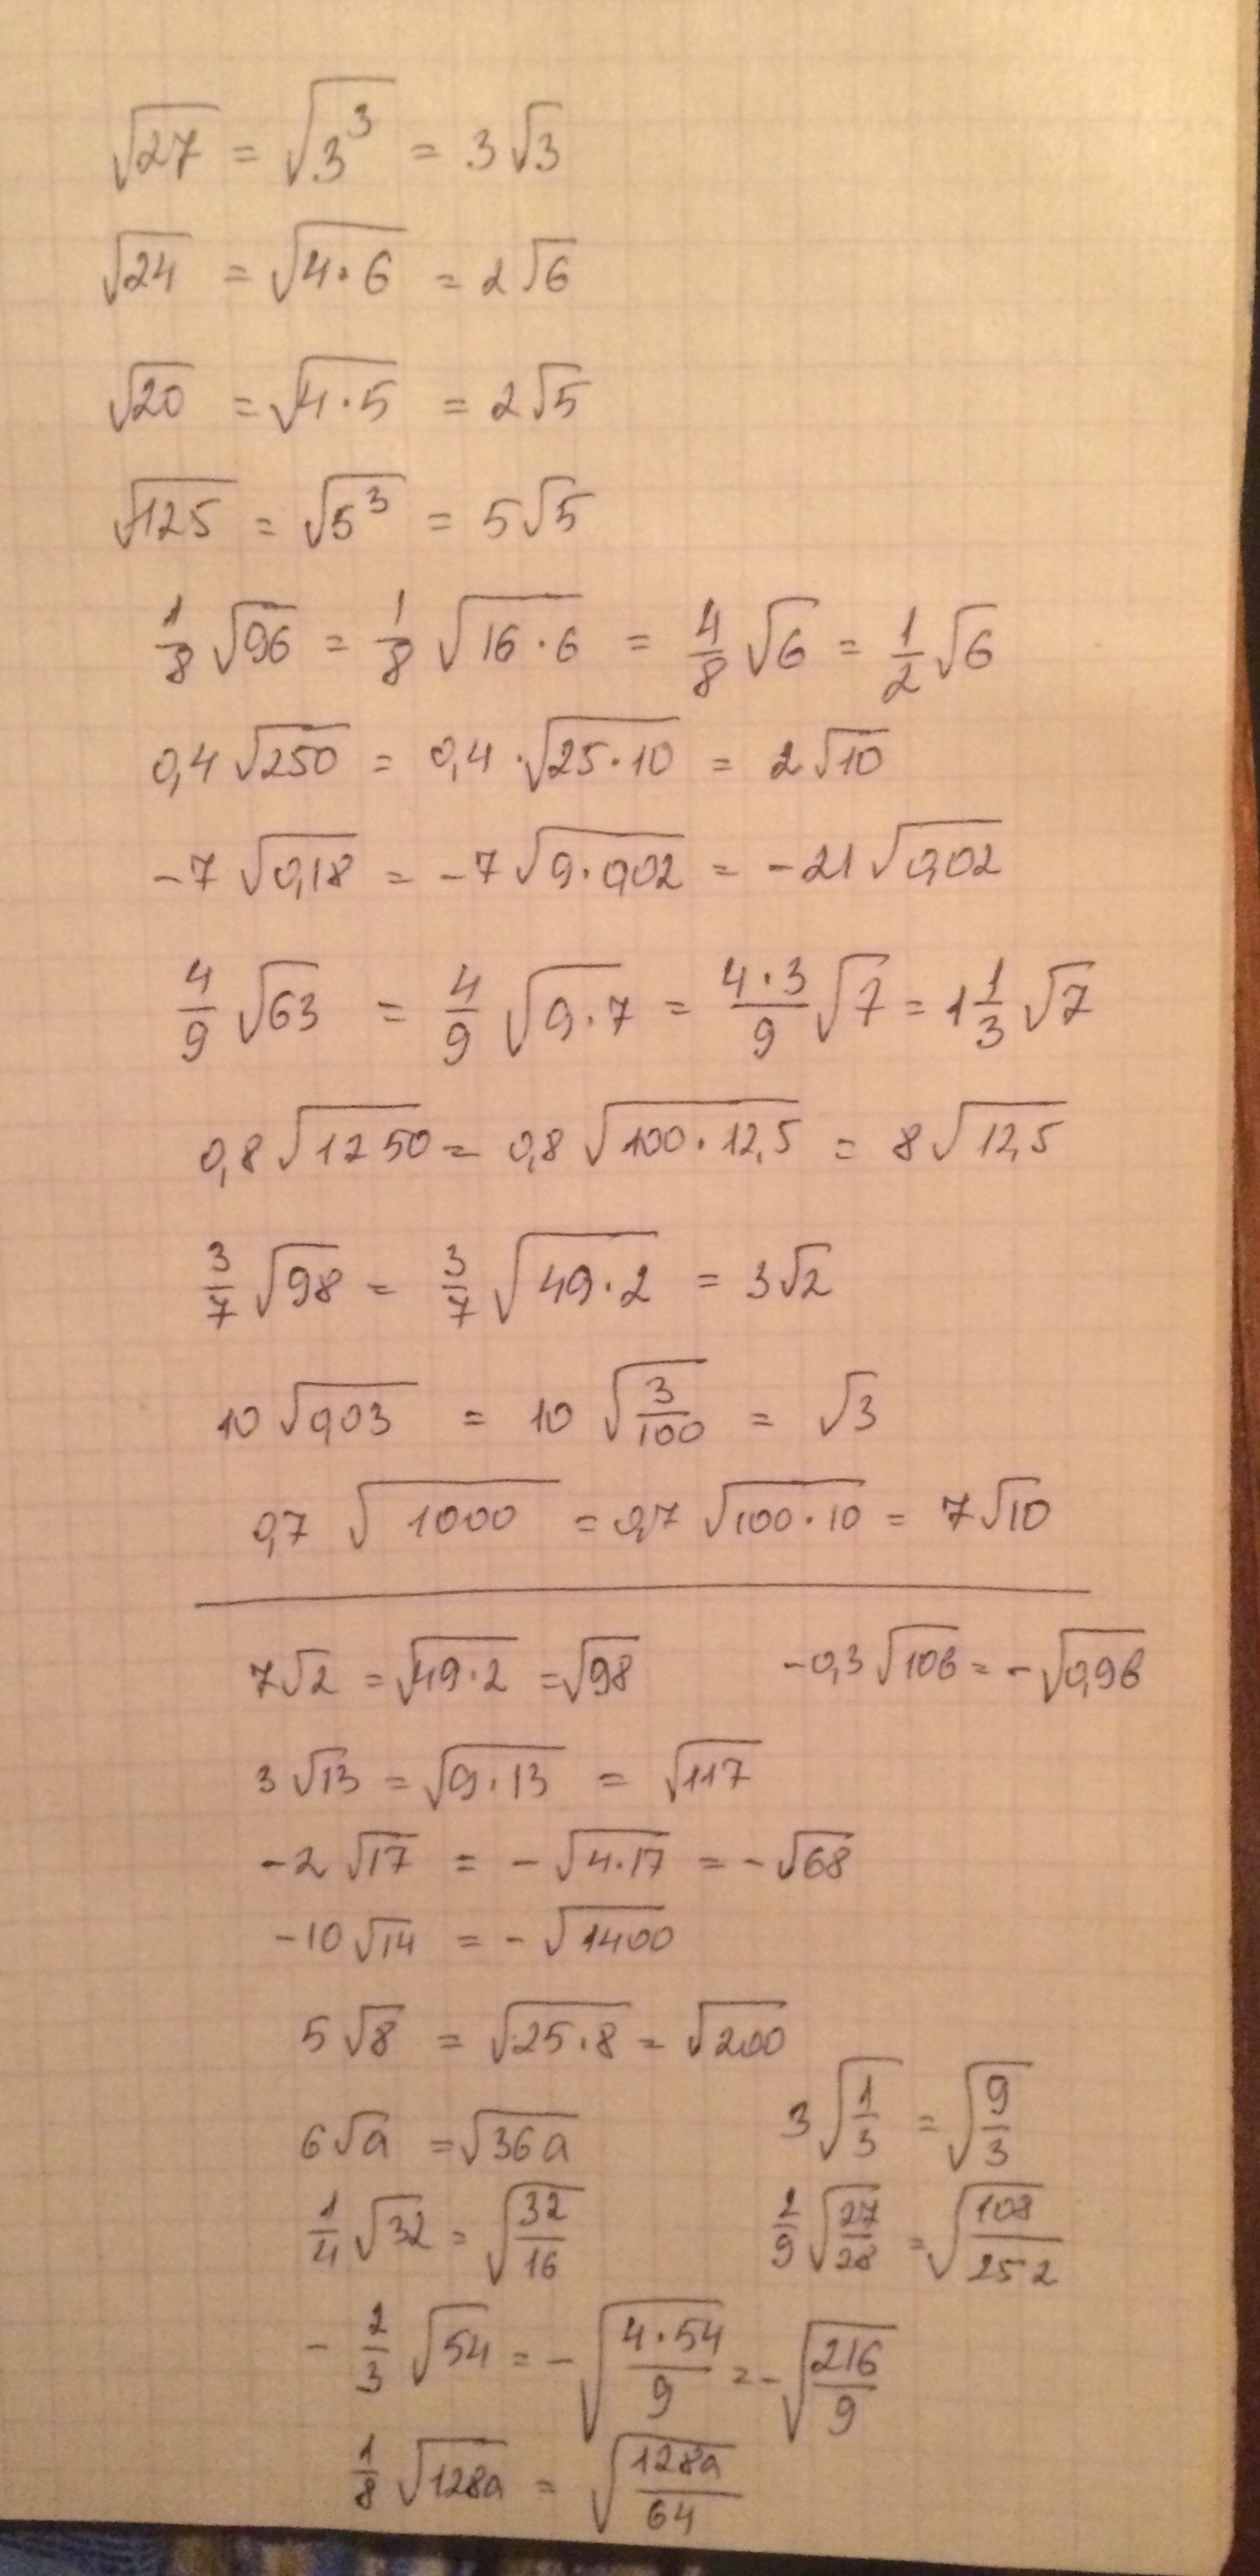 √27 = √3³ = 3√3
√24 = √4·6 = 2√6
√20 = √4·5 = 2√5
√125 = √5³ = 5√5
1/8 √96 = 1/8 √16·6 = 4/8 √6 = 1/2 √6
0,4 √250 = 0,4·√25·10 = 2√10
-7 √0,18 = -7 √9·0,02 = -21 √0,02
4/9 √63 = 4/9 √9·7 = 4·3/9 √7 = 1 1/3 √7
0,8 √1250 = 0,8 √100·12,5 = 8 √12,5
3/7 √98 = 3/7 √49·2 = 3√2
10 √0,03 = 10 √3/100 = √3
0,7 √1000 = 0,7 √100·10 = 7√10
7√2 = √49·2 = √98
-0,3 √10b = -√0,9b
3 √13 = √9·13 = √117
-2 √17 = -√4·17 = -√68
-10 √14 = -√1400
5 √8 = √25·8 = √200
6√a = √36a
3 √1/3 = √9/3
1/4 √32 = √32/16
2/9 √27/28 = √108/252
- 2/3 √54 = -√4·54/9 = -√216/9
1/8 √128a = √128a/64